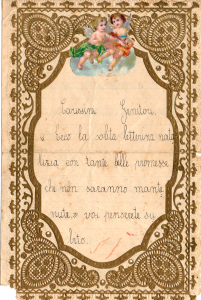 Carissimi Genitori
Ecco la solita letterina nata
lizia con tante belle promesse
che non saranno mante
nute e voi penserete su
bito: